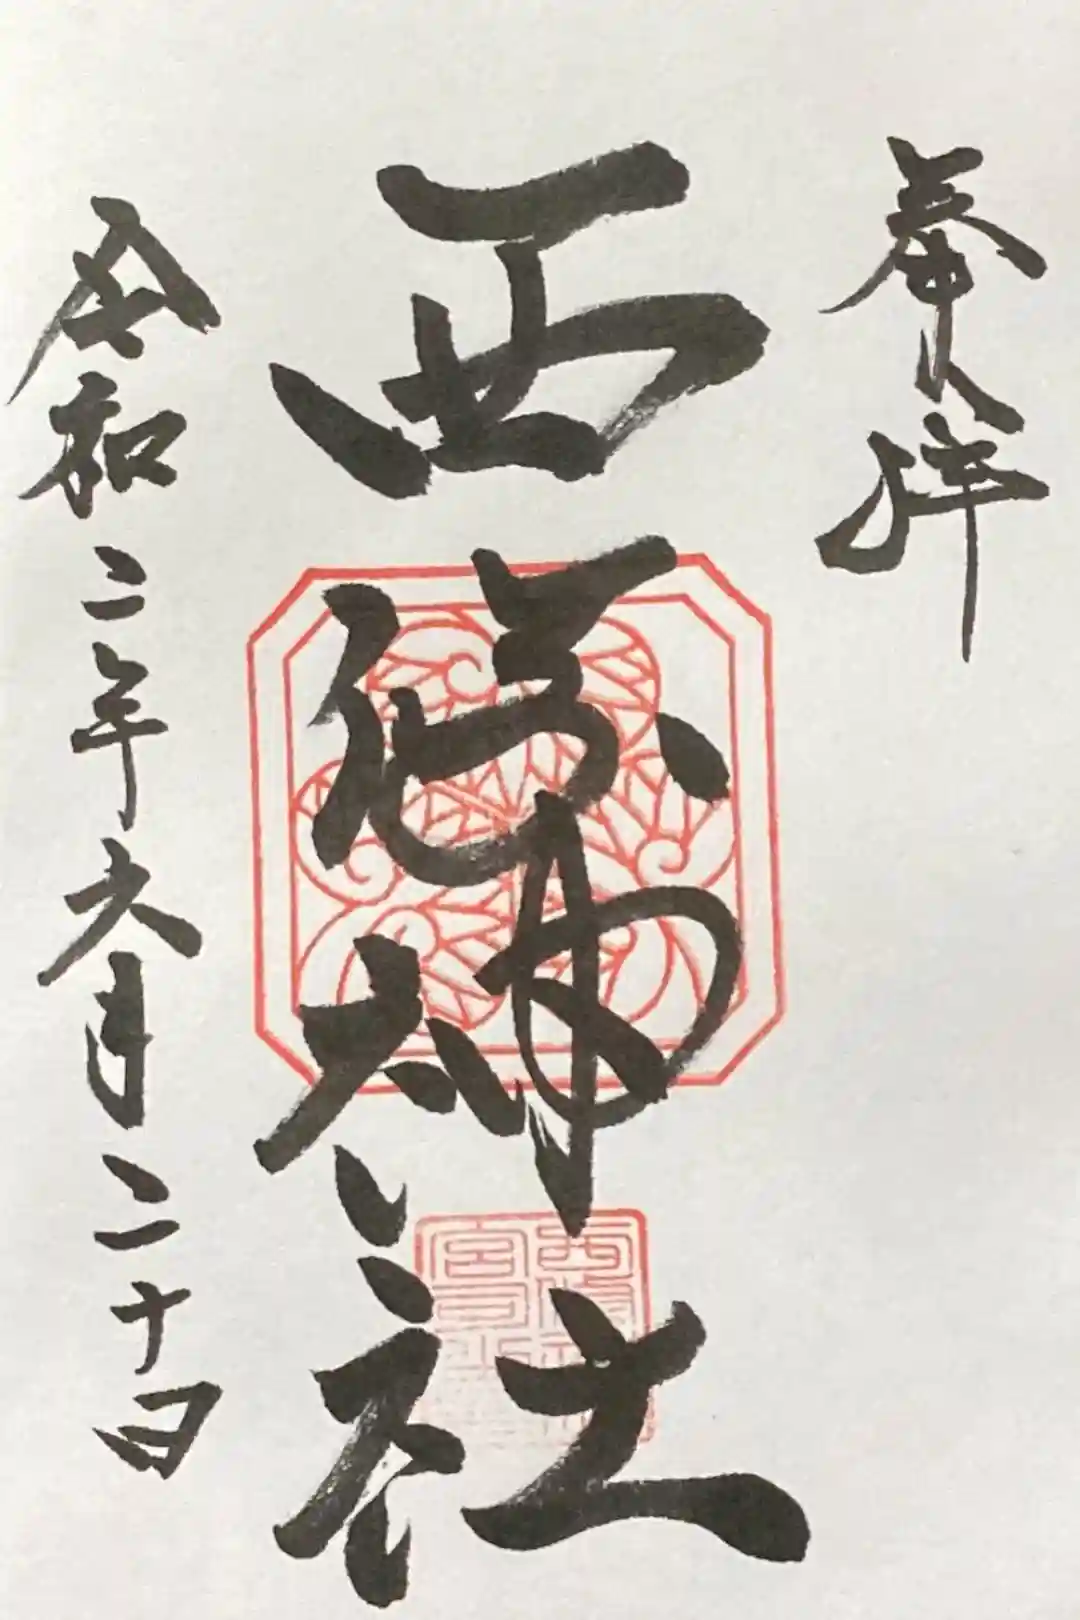 奉拝
西條神社
令和二年六月二十日